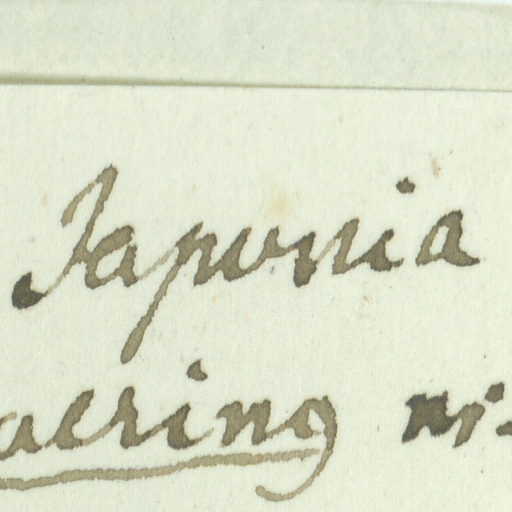 Japonia
aering